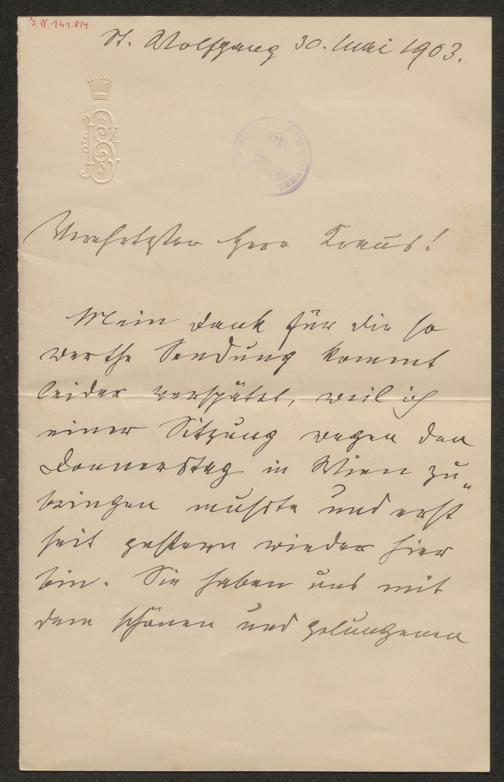 I.N. 141.814
St. Wolfgang 30. Mai 1903.
Verehrtester Herr Kraus!
Mein Dank für die so
werthe Sendung kommt
leider verspätet, weil ich
einer Sitzung wegen den
Donnerstag in Wien zu-
bringen mußte und erst
seit gestern wieder hier
bin. Sie haben uns mit
dem schönen und gelungenen